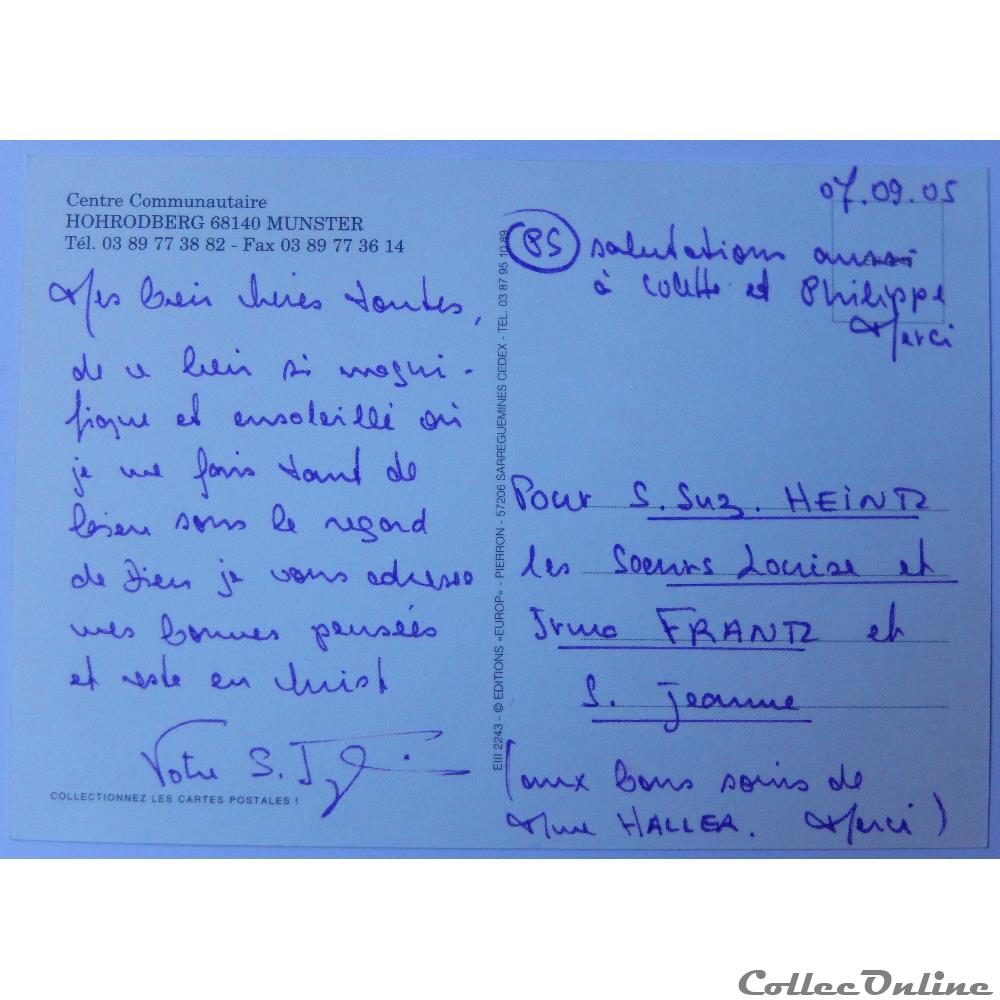 Centre Communautaire
HOHRODBERG 68140 MUNSTER
Tél. 03 89 77 38 82 - Fax 03 89 77 36 14
Mes bien chères toutes,
de ce lieu si magni-
fique et ensoleillé où
je me fais tant de
bien sous le regard
de Dieu je vous adresse
mes bonnes pensées
et reste en Christ
Votre S.
COLLECTIONNEZ LES CARTES POSTALES !
EIII 2243 - © EDITIONS «EUROP» - PIERRON - 57206 SARREGUEMINES CEDEX - TEL. 03 87 95 10 89
07.09.05
PS salutations aussi
à Colette et Philippe
Merci
Pour S. Suz. HEINTZ
les Soeurs Louise et
Irma FRANTZ et
S. Jeanne
(aux bons soins de
Mme HALLER. Merci)
CollecOnline